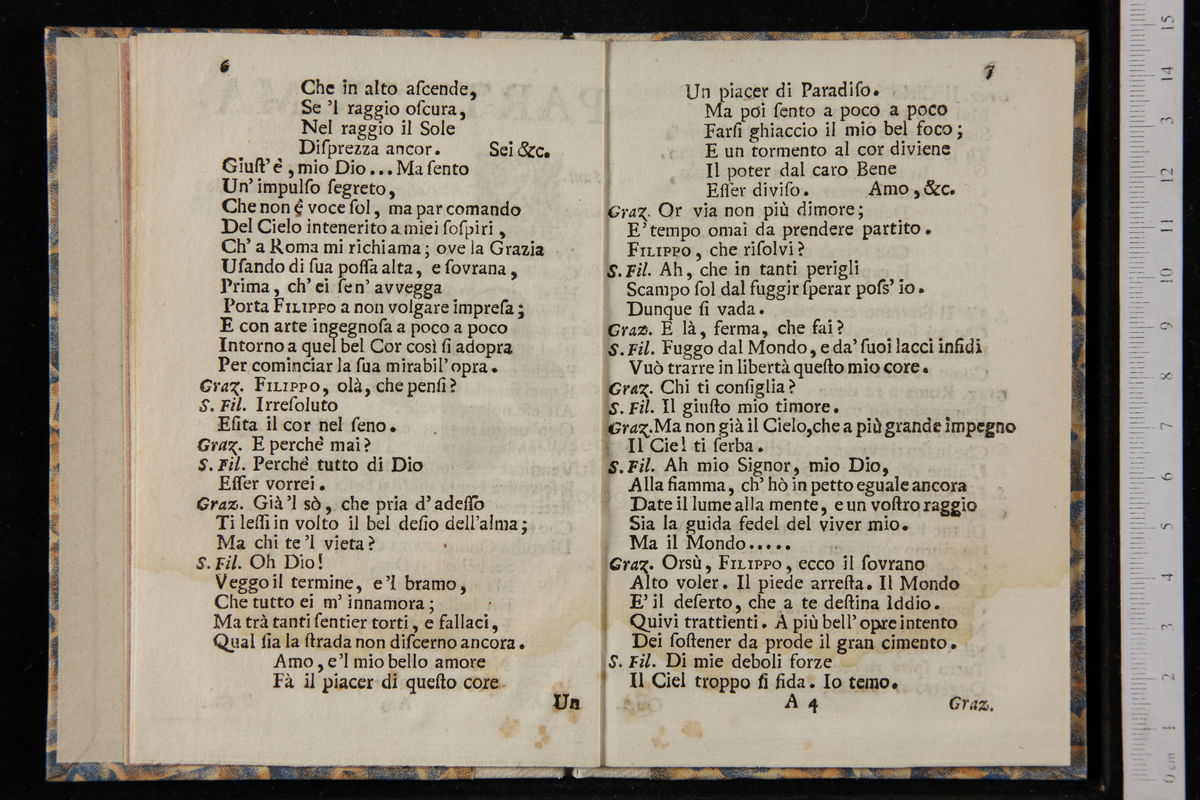 6
Che in alto aſcende,
Se 'l raggio oſcura,
Nel raggio il Sole
Diſprezza ancor. Sei &c.
Giuſt'è, mio Dio... Ma ſento
Un' impulſo ſegreto,
Che non è voce ſol, ma par comando
Del Cielo intenerito a miei ſoſpiri,
Ch' a Roma mi richiama; ove la Grazia
Uſando di ſua poſſa alta, e ſovrana,
Prima, ch' ei ſen' avvegga
Porta FILIPPO a non volgare impreſa;
E con arte ingegnoſa a poco a poco
Intorno a quel bel Cor così ſi adopra
Per cominciar la ſua mirabil' opra.
Graz. FILIPPO, olà, che penſi?
S. Fil. Irreſoluto
Eſita il cor nel ſeno.
Graz. E perchè mai?
S. Fil. Perchè tutto di Dio
Eſſer vorrei.
Graz. Già 'l sò, che pria d' adeſſo
Ti leſſi in volto il bel deſio dell'alma;
Ma chi te 'l vieta?
S. Fil. Oh Dio!
Veggo il termine, e 'l bramo,
Che tutto ei m' innamora;
Ma trà tanti ſentier torti, e fallaci,
Qual ſia la ſtrada non diſcerno ancora.
Amo, e 'l mio bello amore
Fà il piacer di queſto core
Un
7
Un piacer di Paradiſo.
Ma poi ſento a poco a poco
Farſi ghiaccio il mio bel foco;
E un tormento al cor diviene
Il poter dal caro Bene
Eſſer diviſo. Amo, &c.
Graz. Or via non più dimore;
E' tempo omai da prendere partito.
FILIPPO, che riſolvi?
S. Fil. Ah, che in tanti perigli
Scampo ſol dal fuggir ſperar poſs' io.
Dunque ſi vada.
Graz. E là, ferma, che fai?
S. Fil. Fuggo dal Mondo, e da' ſuoi lacci inſidi
Vuò trarre in libertà queſto mio core.
Graz. Chi ti conſiglia?
S. Fil. Il giuſto mio timore.
Graz. Ma non già il Cielo, che a più grande impegno
Il Ciel ti ſerba.
S. Fil. Ah mio Signor, mio Dio,
Alla fiamma, ch' hò in petto eguale ancora
Date il lume alla mente, e un voſtro raggio
Sia la guida fedel del viver mio.
Ma il Mondo.....
Graz. Orsù, FILIPPO, ecco il ſovrano
Alto voler. Il piede arreſta. Il Mondo
E' il deſerto, che a te deſtina Iddio.
Quivi trattienti. A più bell' opre intento
Dei ſoſtener da prode il gran cimento.
S. Fil. Di mie deboli forze
Il Ciel troppo ſi fida. Io temo.
A 4 Graz.
0 cm 1 2 3 4 5 6 7 8 9 10 11 12 13 14 15